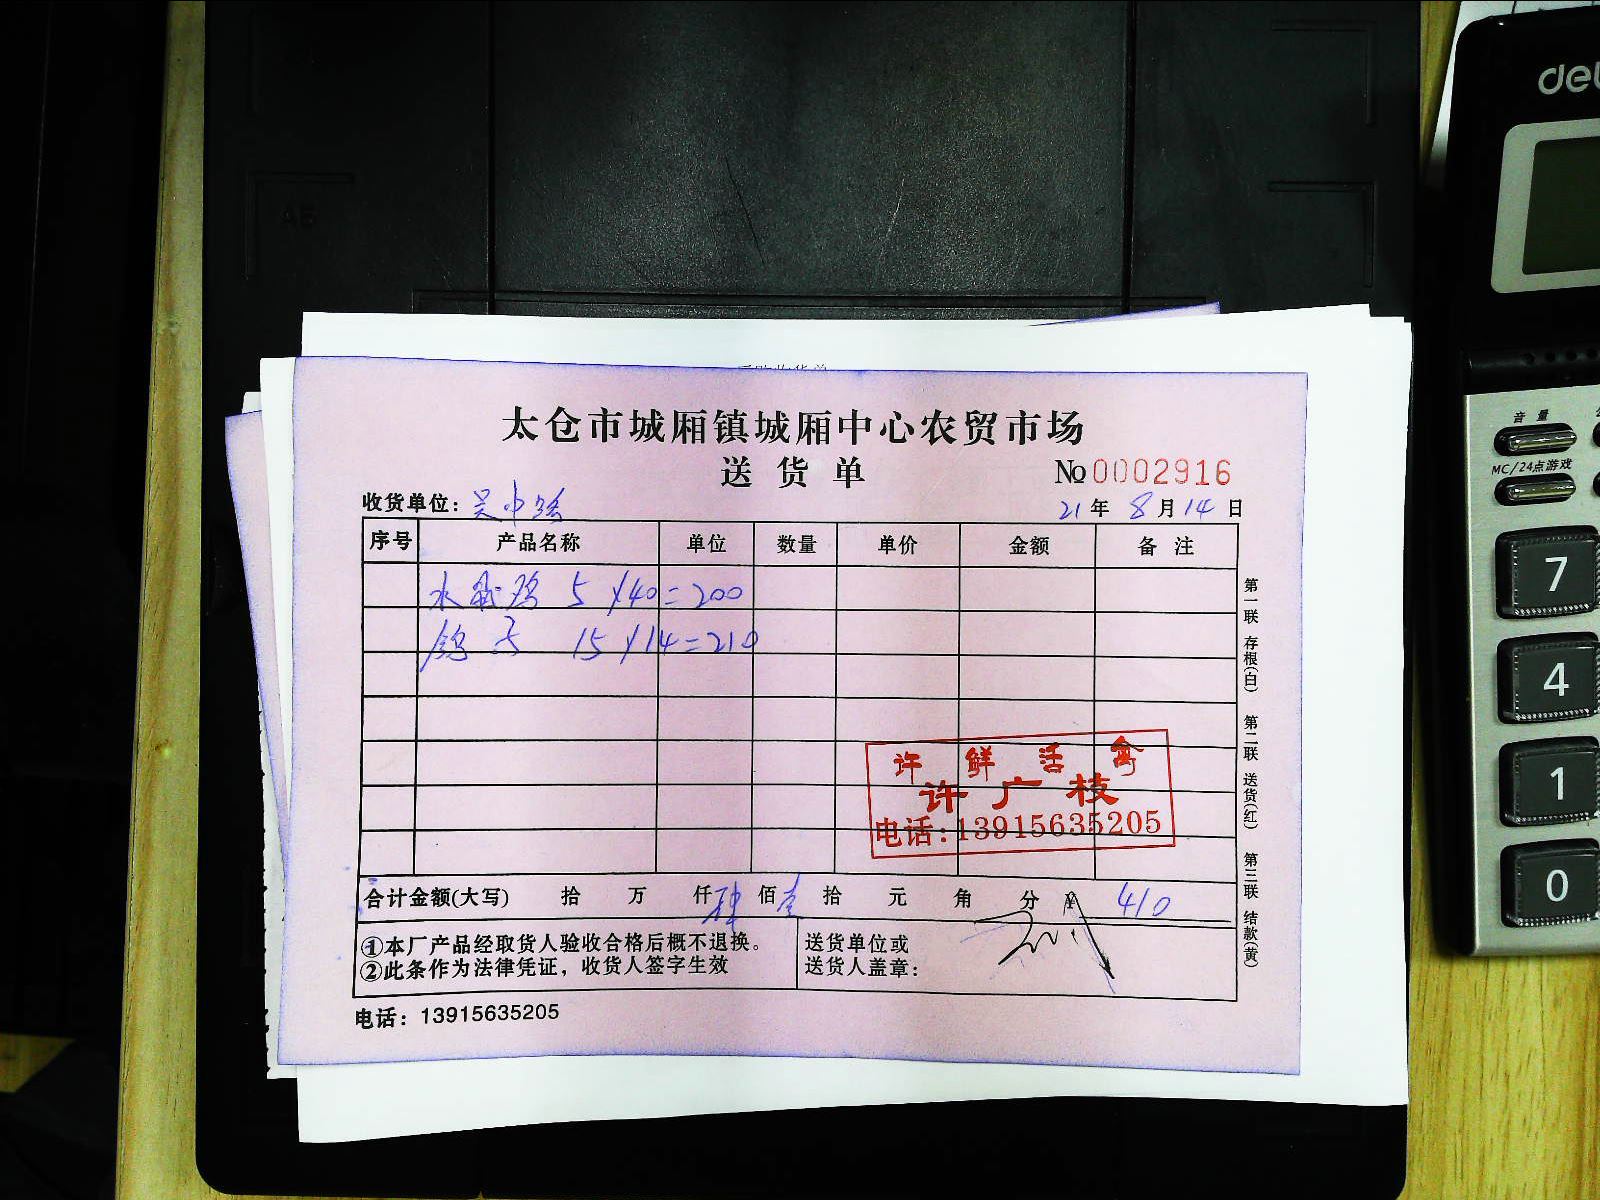 太仓市城厢镇城厢中心农贸市场
送货单
№0002916
收货单位：吴中强
21年8月14日
序号 产品名称 单位 数量 单价 金额 备注
水 5×40=200
鸽子 15×14=210
许鲜活禽
许广枝
电话:13915635205
合计金额(大写) 拾 万 仟肆佰壹拾 元 角 分 ¥ 410
①本厂产品经取货人验收合格后概不退换。
②此条作为法律凭证，收货人签字生效
送货单位或
送货人盖章：
电话：13915635205
第一联 存根(白) 第二联 送货(红) 第三联 结款(黄)
音量
MC/24点游戏
7
4
1
0